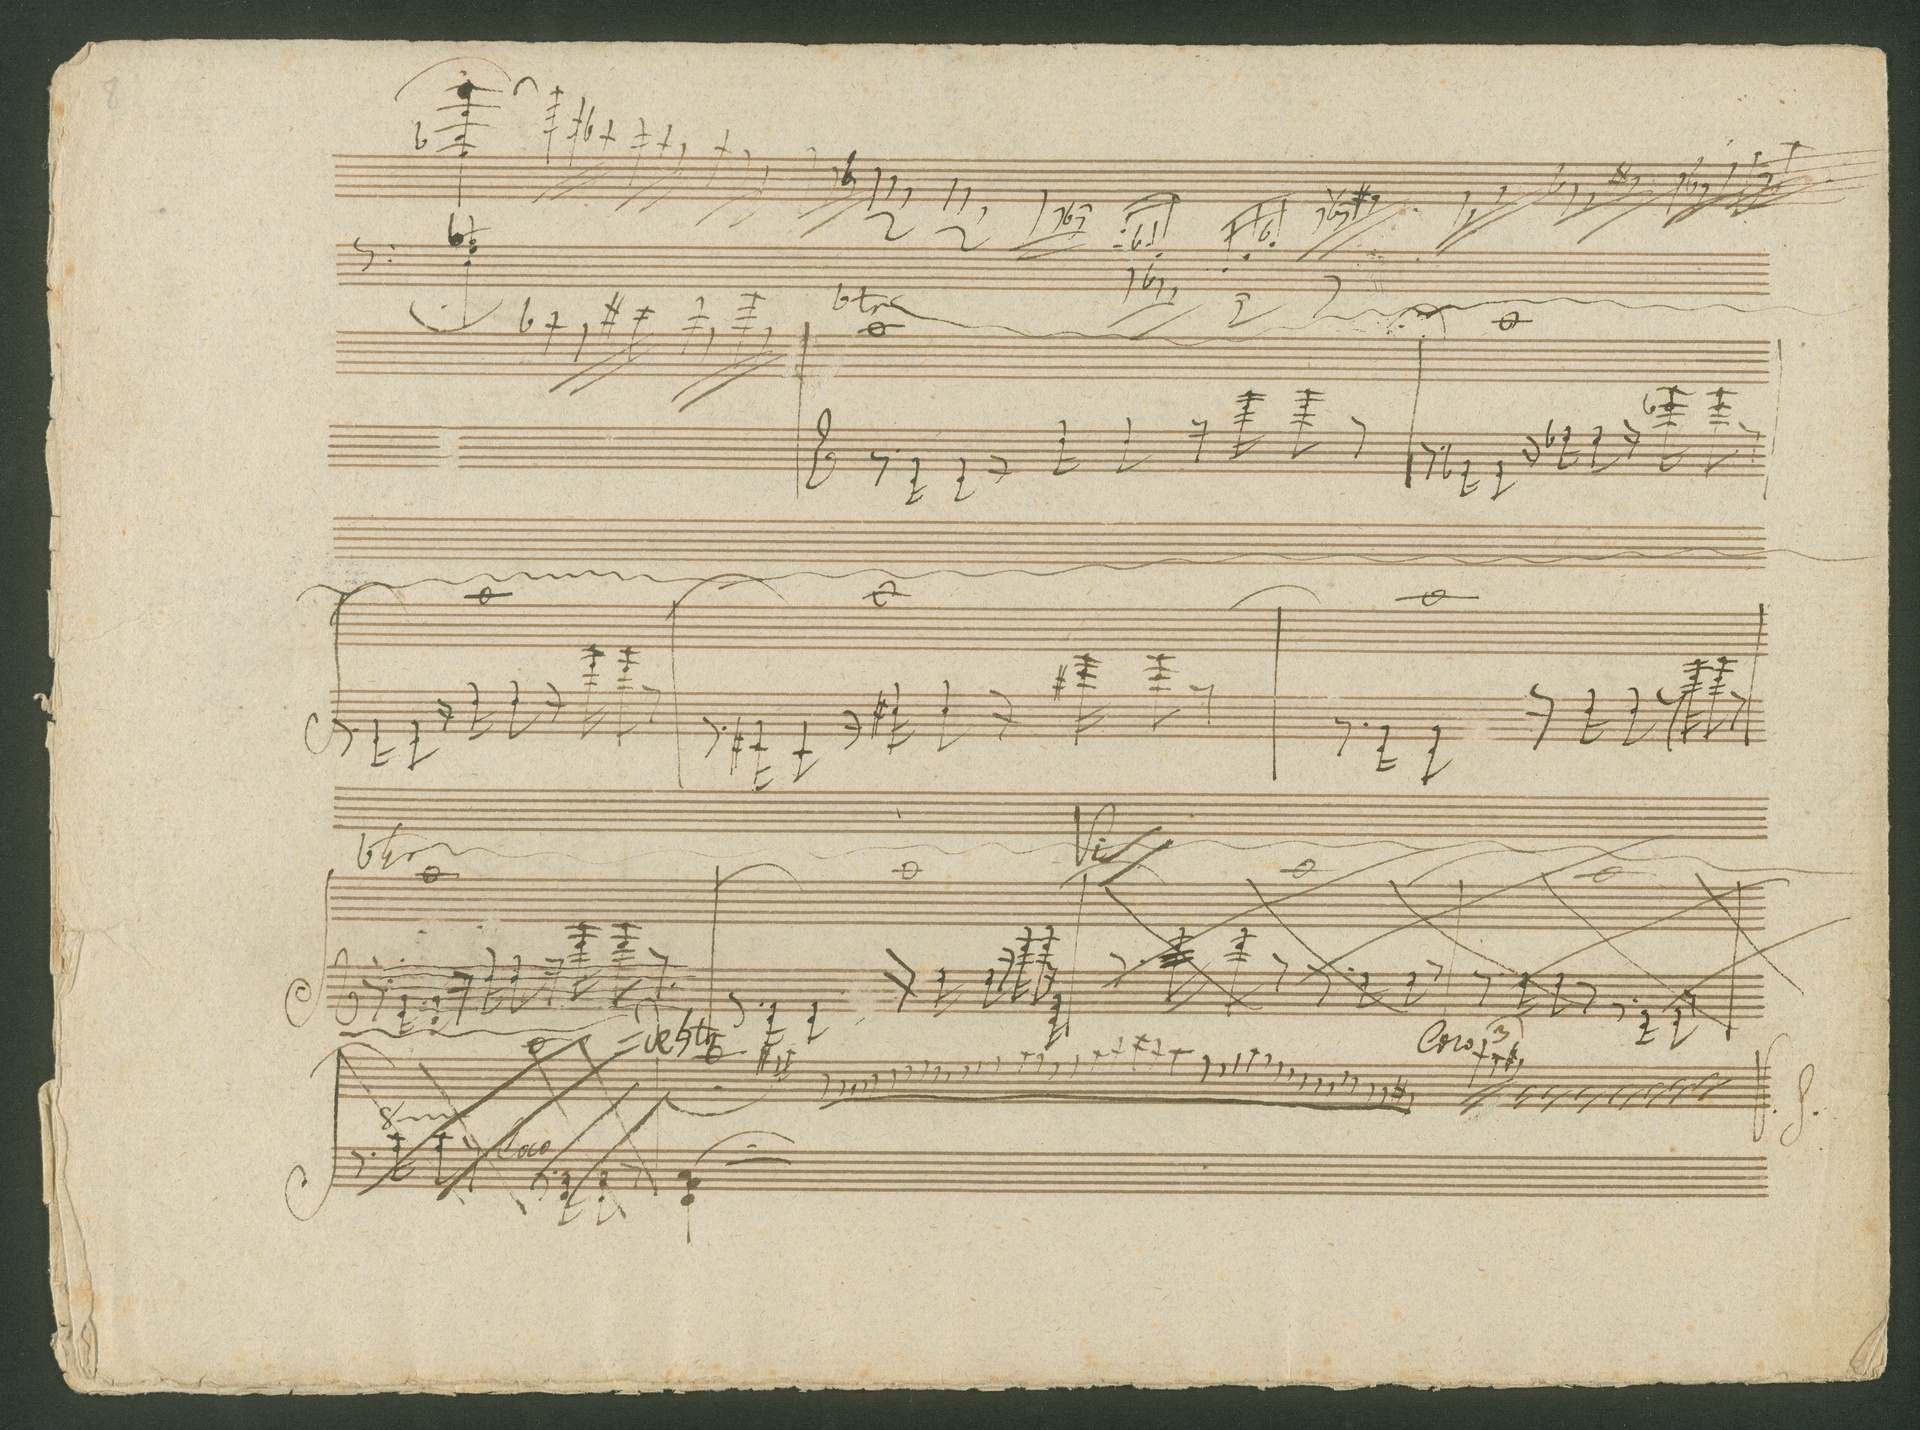 8
tr
tr
Vi=
=de tr
loco
8
loco